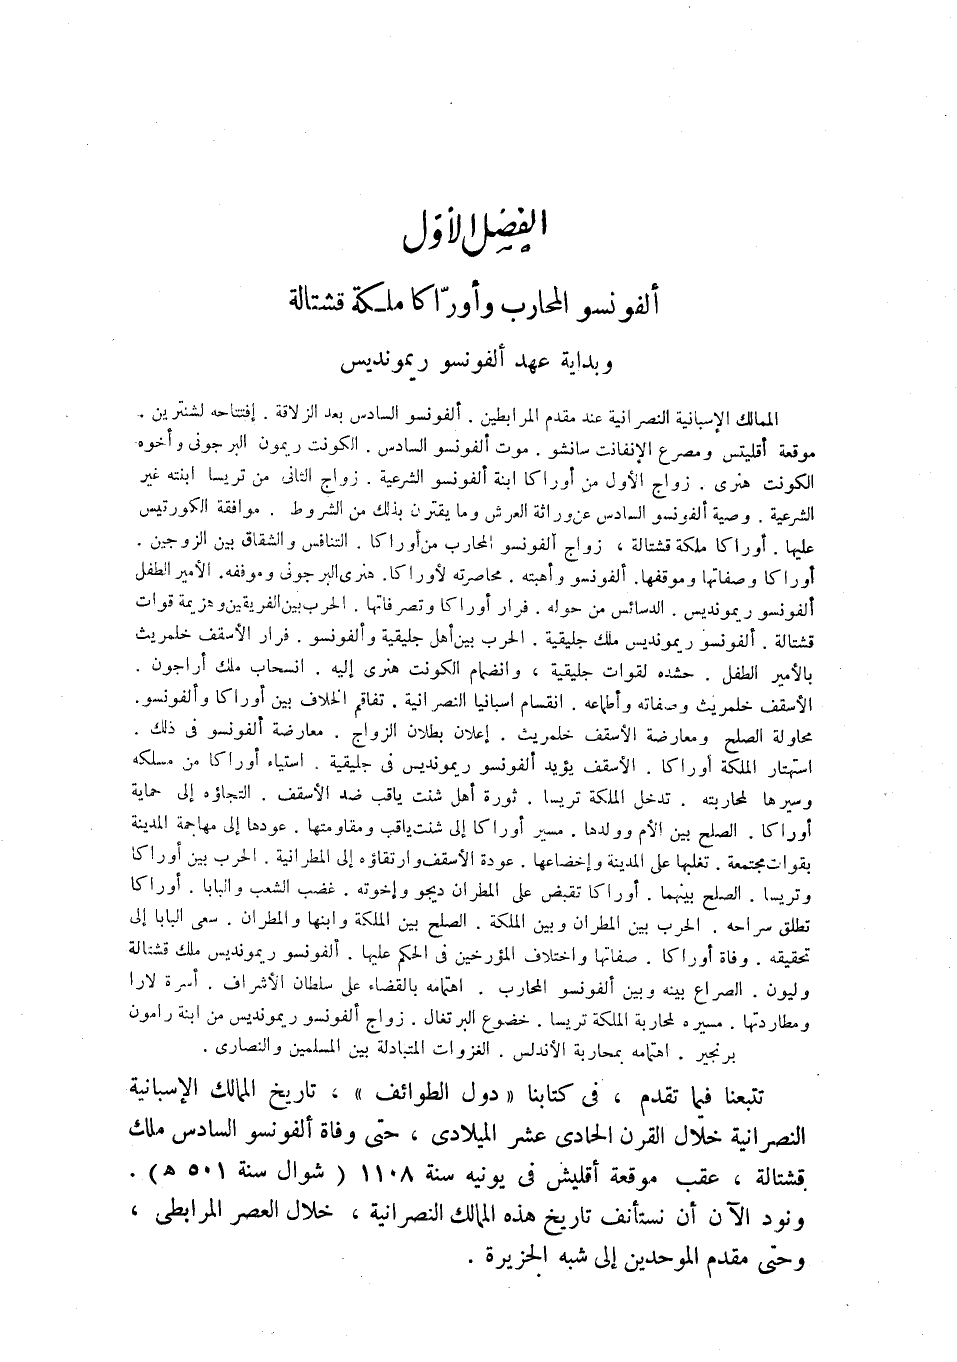 الفصل الأول
ألفونسو المحارب وأورّاكا ملكة قشتالة
وبداية عهد ألفونسو ريمونديس
الممالك الإسبانية النصرانية عند مقدم المرابطين . ألفونسو السادس بعد الزلاقة . إفتتاحه لشنترين .
موقعة أقليتس ومصرع الإنفانت سانشو . موت ألفونسو السادس . الكونت ريمون البرجونى وأخوه
الكونت هنرى . زواج الأول من أوراكا ابنة ألفونسو الشرعية . زواج الثانى من تريسا ابنته غير
الشرعية . وصية ألفونسو السادس عن وراثة العرش وما يقترن بذلك من الشروط . موافقة الكورتيس
عليها . أوراكا ملكة قشتالة ، زواج ألفونسو المحارب من أوراكا . التنافس والشقاق بين الزوجين .
أوراكا وصفاتها وموقفها. ألفونسو وأهبته . محاصرته لأوراكا. هنرى البرجونى وموقفه. الأمير الطفل
ألفونسو ريمونديس . الدسائس من حوله . فرار أوراكا وتصرفاتها . الحرب بين الفريقين وهزيمة قوات
قشتالة . ألفونسو ريمونديس ملك جليقية . الحرب بين أهل جليقية وألفونسو . فرار الأسقف خلمريث
بالأمير الطفل . حشده لقوات جليقية ، وانضمام الكونت هنرى إليه . انسحاب ملك أراجون .
الأسقف خلمريث وصفاته وأطماعه . انقسام اسبانيا النصرانية . تفاقم الخلاف بين أوراكا وألفونسو.
محاولة الصلح ومعارضة الأسقف خلمريث . إعلان بطلان الزواج . معارضة ألفونسو فى ذلك .
استهتار الملكة أوراكا . الأسقف يؤيد ألفونسو ريمونديس فى جليقية . استياء أوراكا من مسلكه
وسيرها لمحاربته . تدخل الملكة تريسا . ثورة أهل شنت ياقب ضد الأسقف . التجاؤه إلى حماية
أوراكا . الصلح بين الأم وولدها . مسير أوراكا إلى شنت ياقب ومقاومتها . عودها إلى مهاجمة المدينة
بقوات مجتمعة . تغلبها على المدينة وإخضاعها . عودة الأسقف وارتقاؤه إلى المطرانية . الحرب بين أوراكا
وتريسا . الصلح بينهما . أوراكا تقبض على المطران ديجو وإخوته . غضب الشعب والبابا . أوراكا
تطلق سراحه . الحرب بين المطران وبين الملكة . الصلح بين الملكة وابنها والمطران . سعى البابا إلى
تحقيقه . وفاة أوراكا . صفاتها واختلاف المؤرخين فى الحكم عليها . ألفونسو ريمونديس ملك قشتالة
وليون . الصراع بينه وبين ألفونسو المحارب . اهتمامه بالقضاء على سلطان الأشراف . أسرة لارا
ومطاردتها . مسيره لمحاربة الملكة تريسا . خضوع البرتغال . زواج ألفونسو ريمونديس من ابنة رامون
برنجير . اهتمامه بمحاربة الأندلس . الغزوات المتبادلة بين المسلمين والنصارى .
تتبعنا فيما تقدم ، فى كتابنا « دول الطوائف » ، تاريخ الممالك الإسبانية
النصرانية خلال القرن الحادى عشر الميلادى ، حتى وفاة ألفونسو السادس ملك
قشتالة ، عقب موقعة أقليش فى يونيه سنة ١١٠٨ ( شوال سنة ٥٠١ هـ ) .
ونود الآن أن نستأنف تاريخ هذه الممالك النصرانية ، خلال العصر المرابطى ،
وحتى مقدم الموحدين إلى شبه الجزيرة .